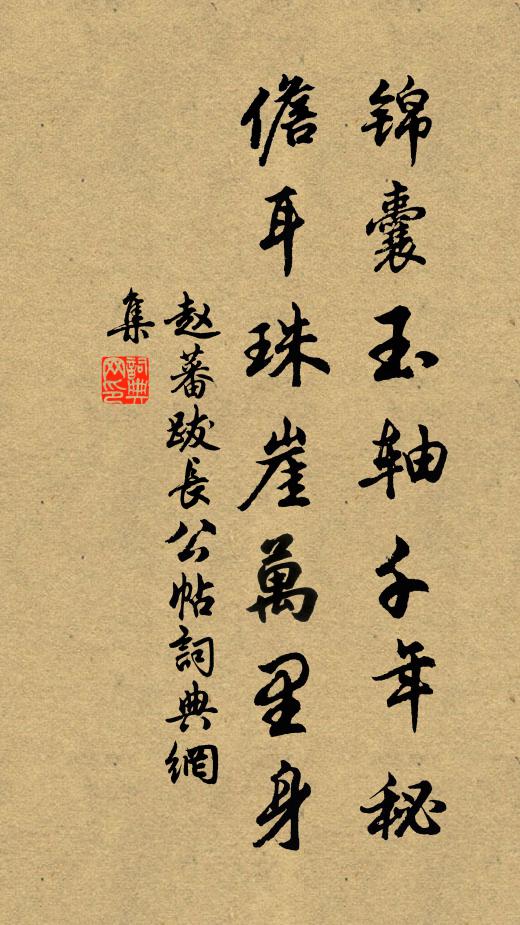 锦囊玉轴千年秘
儋耳珠崖萬里身
赵蕃跋長公帖詞典網
集
詞典
网印